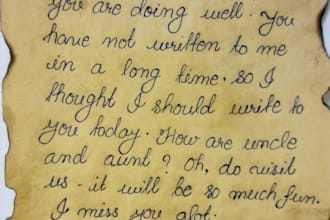 you are doing well. You
have not written to me
in a long time. so I
thought I should write to
you today. How are uncle
and aunt? Oh, do visit
us. it will be so much fun.
I miss you alot.